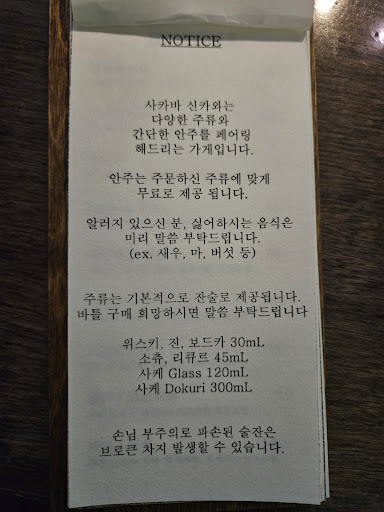 NOTICE
사카바 신카와는
다양한 주류와
간단한 안주를 페어링
해드리는 가게입니다.
안주는 주문하신 주류에 맞게
무료로 제공 됩니다.
알러지 있으신 분, 싫어하시는 음식은
미리 말씀 부탁드립니다.
(ex. 새우, 마, 버섯 등)
주류는 기본적으로 잔술로 제공됩니다.
바틀 구매 희망하시면 말씀 부탁드립니다
위스키, 진, 보드카 30mL
소츄, 리큐르 45mL
사케 Glass 120mL
사케 Dokuri 300mL
손님 부주의로 파손된 술잔은
브로큰 차지 발생할 수 있습니다.